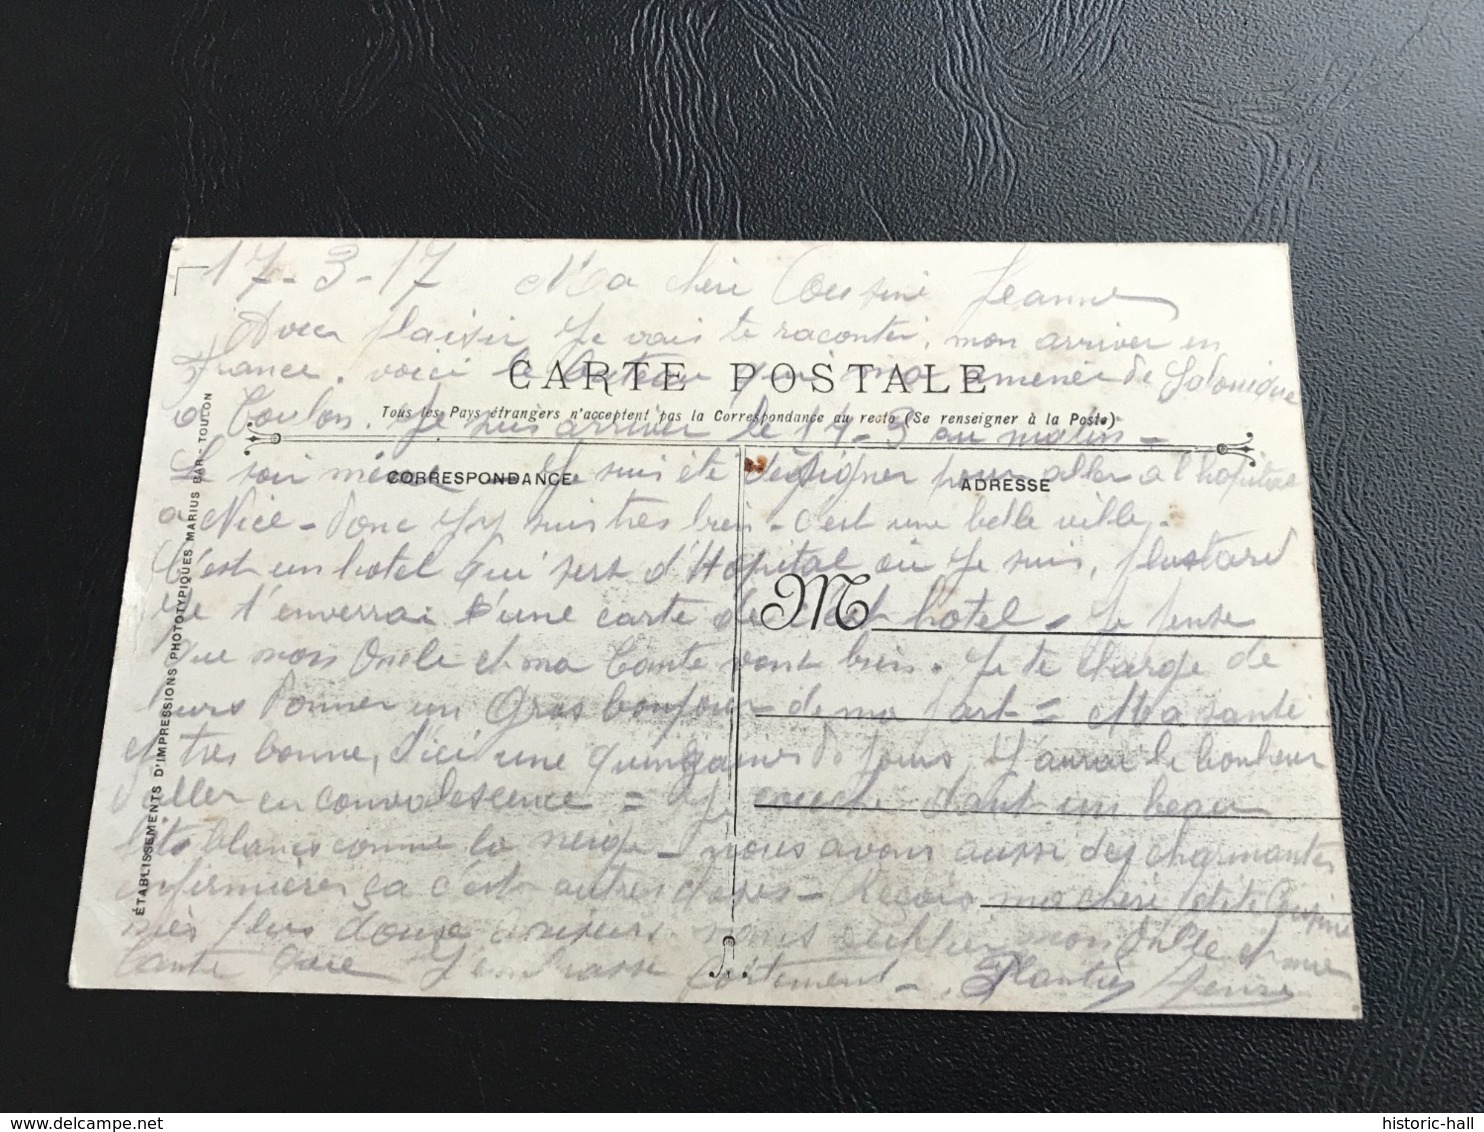 17-3-17 Ma chère Cousine Jeanne
Avec plaisir Je vais te raconter, mon arriver en
France. voici le bateau qui m'a amener de Salonique
CARTE POSTALE
Tous les Pays étrangers n'acceptent pas la Correspondance au recto (Se renseigner à la Poste)
a Toulon. Je suis arriver le 14-3 au matin-
Le soir même - Je suis été désigner pour aller a l'hopital
CORRESPONDANCE
ADRESSE
a Nice - Donc J'y suis tres bien - c'est une belle ville.
C'est un hotel qui sert d'Hopital où Je suis, plustard
Je t'enverrai d'une carte de cet hotel - Je pense
M
que mon Oncle et ma Tante vont bien. Je te charge de
leurs Donner un Gros bonjour de ma part = Ma santé
et tres bonne, d'ici une quinzaine de Jours, J'aurai le bonheur
d'aller en convalescence = Je couche dant un beau
lits blancs comme la neige - nous avons aussi des charmantes
infirmières ça c'est autres choses - Reçois ma chère petite Cousine
mes plus doux baisers. sans oublier mon Oncle et ma
Tante que J'embrasse fortement -. Plantier
ÉTABLISSEMENTS D'IMPRESSIONS PHOTOTYPIQUES MARIUS BAR - TOULON
historic-hall